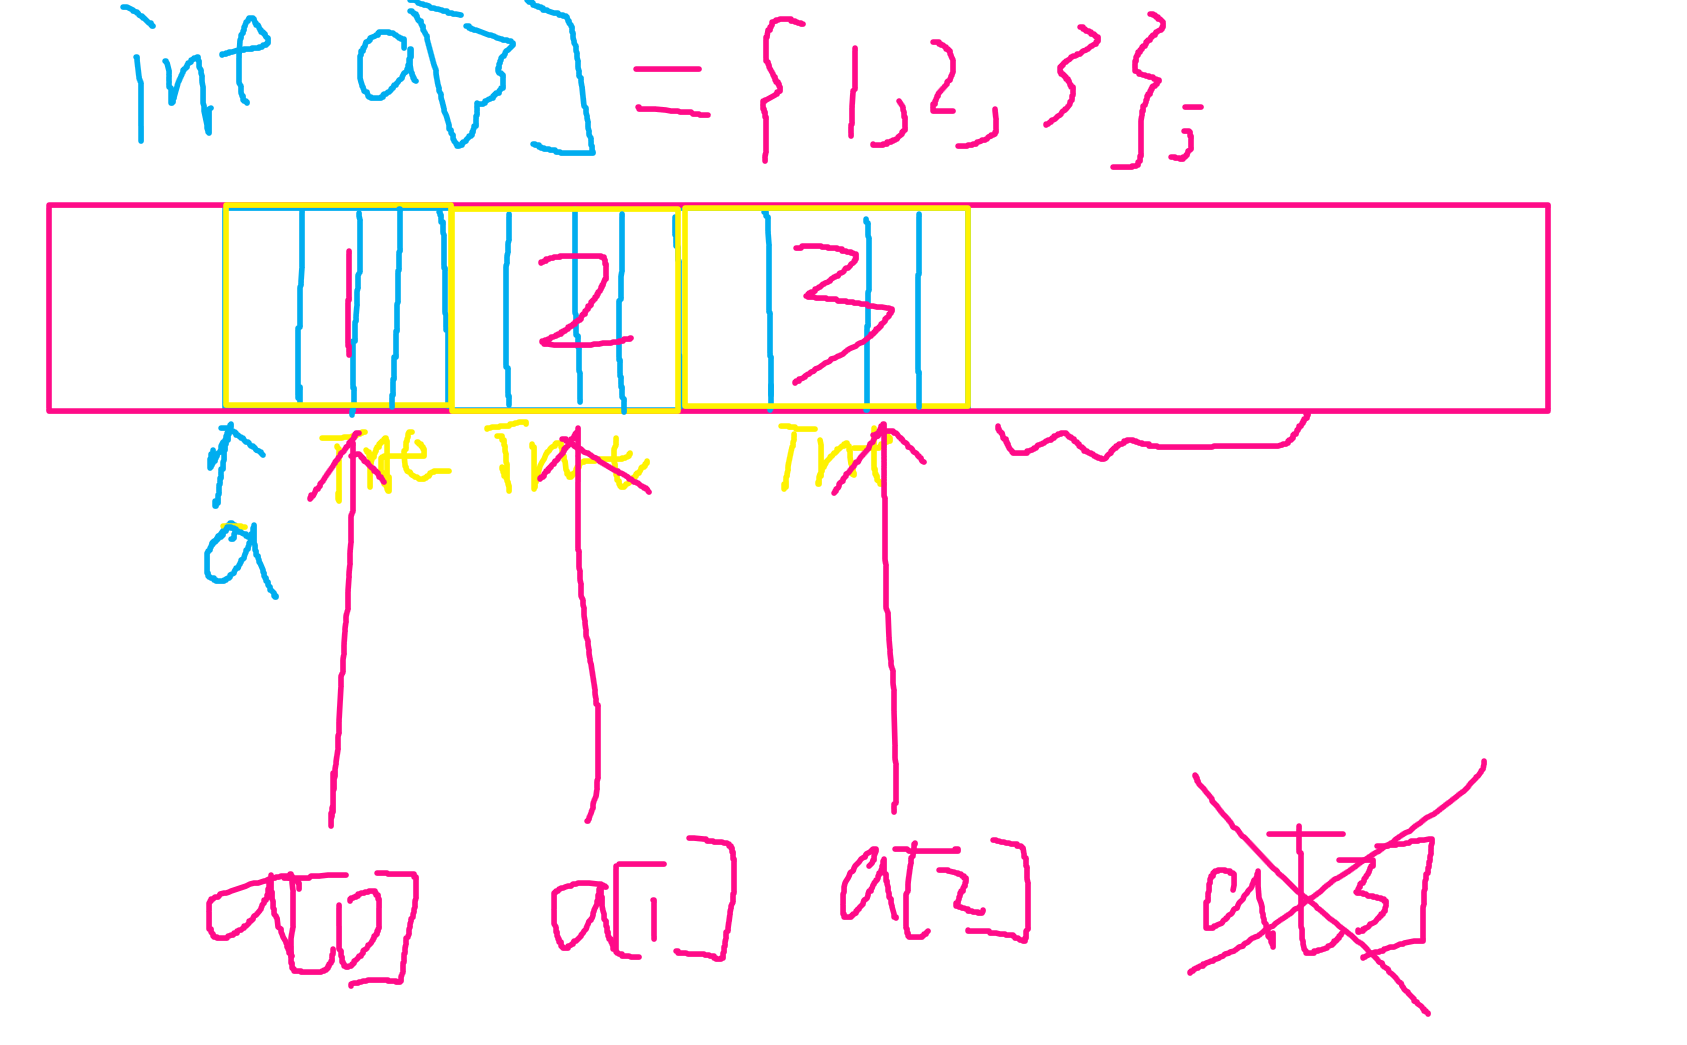 int a[3] = {1,2,3};
1 2 3
Int Int Int
a
a[0] a[1] a[2] a[3]